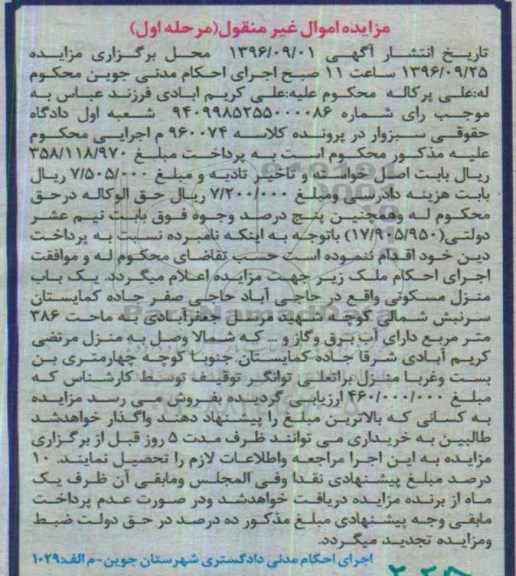 مزایده اموال غیر منقول(مرحله اول)
تاریخ انتشار آگهی ۱۳۹۶/۰۹/۰۱ محل برگزاری مزایده
۱۳۹۶/۰۹/۲۵ ساعت ۱۱ صبح اجرای احکام مدنی جوین محکوم
له:علی پرکاله محکوم علیه:علی کریم ابادی فرزند عباس به
موجب رای شماره ۹۴۰۹۹۸۵۲۵۵۰۰۰۰۸۶ شعبه اول دادگاه
حقوقی سبزوار در پرونده کلاسه ۹۶۰۰۷۴ م اجرایی محکوم
علیه مذکور محکوم است به پرداخت مبلغ ۳۵۸/۱۱۸/۹۷۰
ریال بابت اصل خواسته و تاخیر تادیه و مبلغ ۷/۵۰۵/۰۰۰ ریال
بابت هزینه دادرسی ومبلغ ۷/۲۰۰/۰۰۰ ریال حق الوکاله درحق
محکوم له وهمچنین پنج درصد وجوه فوق بابت نیم عشر
دولتی(۱۷/۹۰۵/۹۵۰) باتوجه به اینکه نامبرده نسبت به پرداخت
دین خود اقدام ننموده است حسب تقاضای محکوم له و موافقت
اجرای احکام ملک زیر جهت مزایده اعلام میگردد. یک باب
منزل مسکونی واقع در حاجی آباد حاجی صفر جاده کمایستان
سرنبش شمالی کوچه شهید مرسل جعفرآبادی به ماحت ۳۸۶
متر مربع دارای آب برق وگاز و_ که شمالا وصل به منزل مرتضی
کریم آبادی شرقا جاده کمایستان جنوبا کوچه چهارمتری بن
بست وغربا منزل براتعلی توانگر توقیف توسط کارشناس که
مبلغ ۴۶۰/۰۰۰/۰۰۰ ارزیابی گردیده بفروش می رسد مزایده
به کسانی که بالاترین مبلغ را پیشنهاد دهند واگذار خواهدشد
طالبین به خریداری می توانند ظرف مدت ۵ روز قبل از برگزاری
مزایده به این اجرا مراجعه واطلاعات لازم را تحصیل نمایند. ۱۰
درصد مبلغ پیشنهادی نقدا وفی المجلس ومابقی آن ظرف یک
ماه از برنده مزایده دریافت خواهدشد ودر صورت عدم پرداخت
مابقی وجه پیشنهادی مبلغ مذکور ده درصد در حق دولت ضبط
ومزایده تجدید میگردد.
اجرای احکام مدنی دادگستری شهرستان جوین-م الف:۱۰۲۹